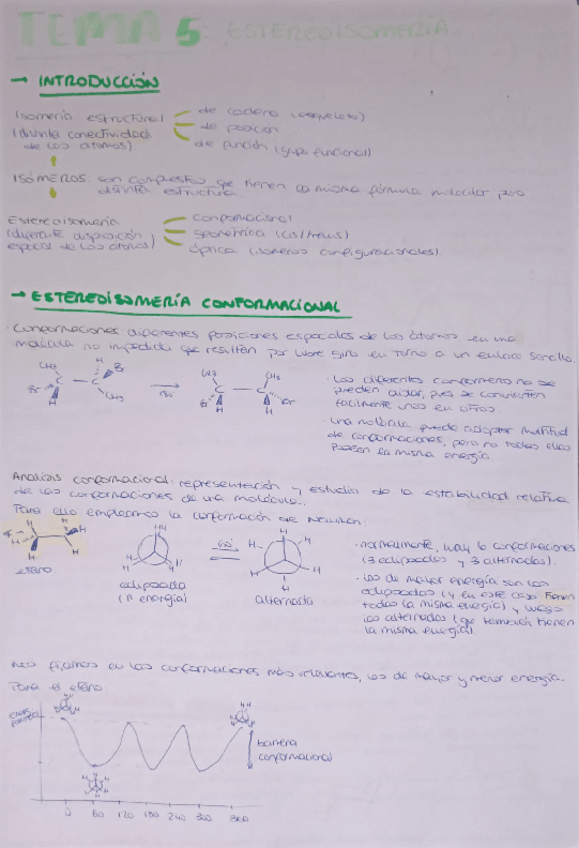 TEMA 5: ESTEREOISOMERÍA
→ INTRODUCCIÓN
Isomería estructural
(distinta conectividad
de los átomos)
de cadena (esqueleto)
de posición
de función (grupo funcional)
ISÓMEROS: son compuestos que tienen la misma fórmula molecular pero
distinta estructura
Estereoisomería
(diferente disposición
espacial de los átomos)
conformacional
geométrica (cis/trans)
óptica (isómeros configuracionales)
→ ESTEREOISOMERÍA CONFORMACIONAL
· Conformaciones: diferentes posiciones espaciales de los átomos en una
molécula no impedida que resultan por libre giro en torno a un enlace sencillo.
CH3 H Br
Br C C
H CH3
CH3 CH3
C C
Br H H Br
· Los diferentes confórmeros no se
pueden aislar, pues se convierten
fácilmente unos en otros.
· Una molécula puede adoptar multitud
de conformaciones, pero no todas ellas
poseen la misma energía
Análisis conformacional: representación y estudio de la estabilidad relativa
de las conformaciones de una molécula.
Para ello empleamos la conformación de Newman:
etano
eclipsada
(↑ energía)
60°
alternada
· normalmente, hay 6 conformaciones
(3 eclipsadas y 3 alternadas).
· Las de mayor energía son las
eclipsadas (y en este caso tienen
todas la misma energía) y luego
las alternadas (que también tienen
la misma energía)
Nos fijamos en las conformaciones más relevantes, las de mayor y menor energía.
Para el etano:
barrera
conformacional
0 60 120 180 240 300 360